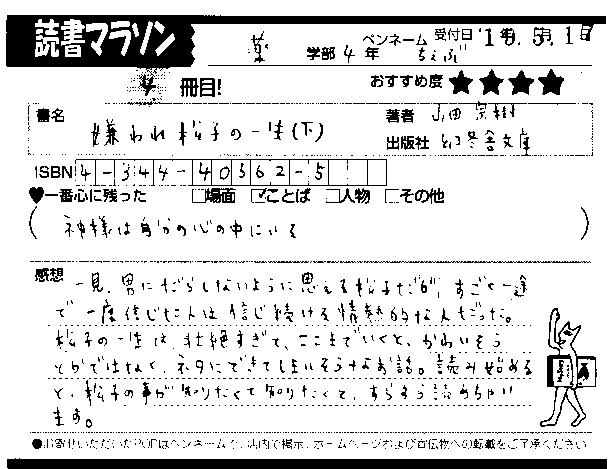 読書マラソン
薬 学部 4 年 ペンネーム ちぇぶ 受付日
4 冊目! おすすめ度 ★★★★
書名 嫌われ松子の一生(下)
著者 山田宗樹
出版社 幻冬舎文庫
ISBN 4-344-40562-5
♥一番心に残った □場面 ☑ことば □人物 □その他
(神様は自分の心の中にいる)
感想 一見、男にだらしないように思える松子だが、すごく一途
で一度信じた人は信じ続ける情熱的な人だった。
松子の一生は、壮絶すぎて、ここまでいくと、かわいそう
とかではなく、ネタにできてしまいそうなお話。読み始める
と、松子の事が知りたくて知りたくて、すらすら読めちゃい
ます。
●お寄せいただいたPOPはペンネームで、店内で掲示、ホームページおよび宣伝物への転載をご了承ください